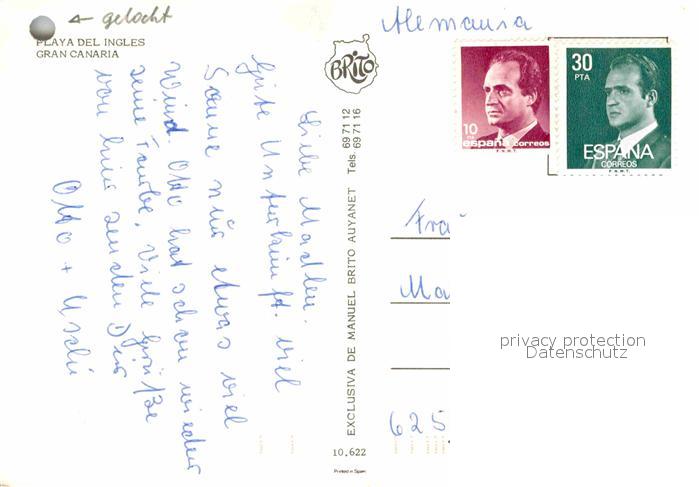 ← gelocht
PLAYA DEL INGLES
GRAN CANARIA
Alemania
BRITO
10
pta
españa correos
F.N.M.T.
30
PTA
ESPAÑA
CORREOS
F.N.M.T.
Liebe Madlen.
Gute Unterkunft. viel
Sonne nur etwas viel
Wind. Otto hat schon wieder
seine Farbe. Viele Grüße
von hier senden Dir
Otto + Uschi
EXCLUSIVA DE MANUEL BRITO AUYANET Tels. 69 71 12
69 71 16
10.622
Printed in Spain
Fra
Ma
625
privacy protection
Datenschutz